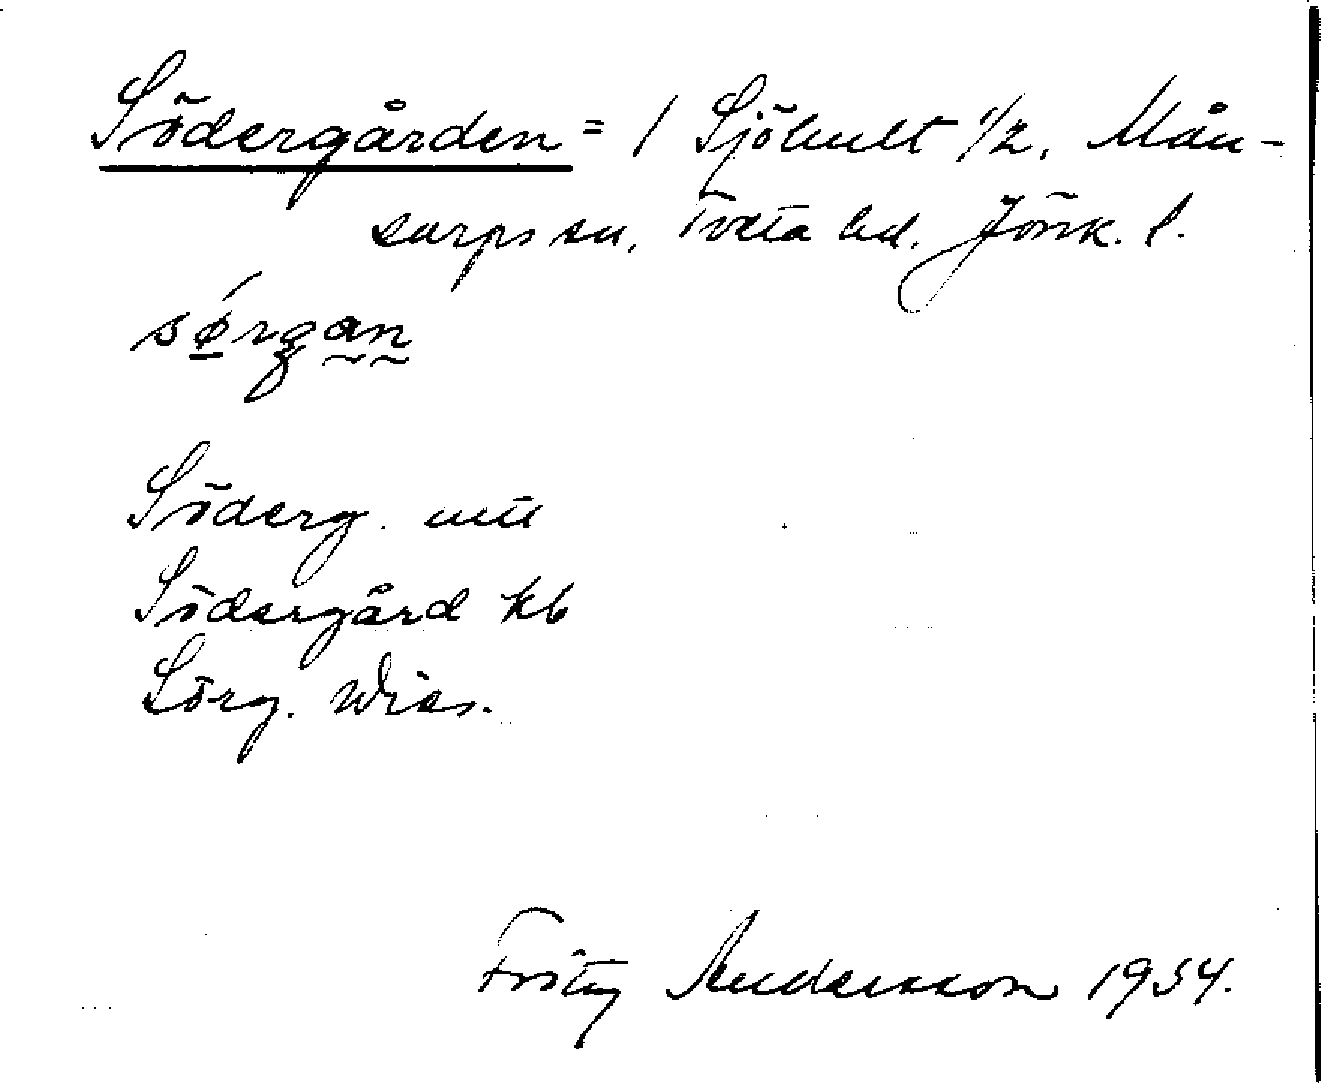 Södergården = 1 Sjöhult 1/2, Mån-
sarps sn, Tveta hd. Jönk. l.
sǿrgan
Söderg. utt
Södergård kb
Sörg. Wies.
Fritz Andersson 1934.